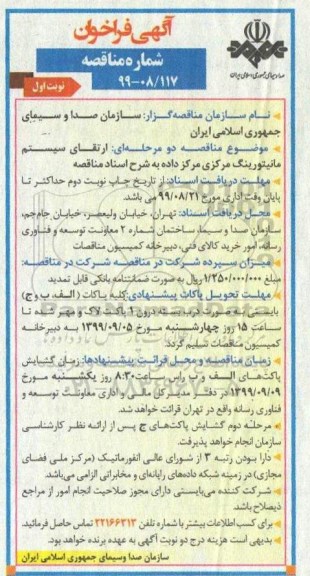 آگهی فراخوان
شماره مناقصه
۹۹-۰۸/۱۱۷
نوبت اول
صدا و سیمای جمهوری اسلامی ایران
نام سازمان مناقصه‌گزار: سازمان صدا و سیمای
جمهوری اسلامی ایران
موضوع مناقصه دو مرحله‌ای: ارتقای سیستم
مانیتورینگ مرکزی مرکز داده به شرح اسناد مناقصه
مهلت دریافت اسناد: از تاریخ چاپ نوبت دوم حداکثر تا
پایان وقت اداری مورخ ۹۹/۰۸/۲۱ می باشد.
محل دریافت اسناد: تهران، خیابان ولیعصر، خیابان جام‌جم،
سازمان صدا و سیما، ساختمان شماره ۲ معاونت توسعه و فناوری
رسانه، امور خرید کالای فنی، دبیرخانه کمیسیون مناقصات
میزان سپرده شرکت در مناقصه شرکت در مناقصه:
مبلغ ۱/۲۵۰/۰۰۰/۰۰۰ ریال به صورت ضمانتنامه بانکی قابل تمدید
مهلت تحویل پاکات پیشنهادی: کلیه پاکات (الف، ب و ج)
بایستی به صورت دربسته درون ۱ پاکت لاک و مهر شده تا
ساعت ۱۵ روز چهارشنبه مورخ ۱۳۹۹/۰۹/۰۵ به دبیرخانه
کمیسیون مناقصات تسلیم گردد.
زمان مناقصه و محل قرائت پیشنهادها: زمان گشایش
پاکت‌های الف و ب راس ساعت ۸:۳۰ روز یکشنبه مورخ
۱۳۹۹/۰۹/۰۹ در دفتر مدیرکل مالی و اداری معاونت توسعه و
فناوری رسانه واقع در تهران قرائت خواهد شد.
مرحله دوم گشایش پاکت‌های ج پس از ارائه نظر کارشناسی
سازمان انجام خواهد پذیرفت.
دارا بودن رتبه ۳ از شورای عالی انفورماتیک (مرکز ملی فضای
مجازی) در زمینه شبکه داده‌های رایانه‌ای و مخابراتی الزامی می‌باشد.
شرکت کننده می‌بایستی دارای مجوز صلاحیت انجام امور از مراجع
ذیصلاح باشد.
برای کسب اطلاعات بیشتر با شماره تلفن ۲۲۱۶۶۳۱۳ تماس حاصل فرمائید.
بدیهی است هزینه درج دو نوبت آگهی به عهده برنده خواهد بود.
سازمان صدا وسیمای جمهوری اسلامی ایران